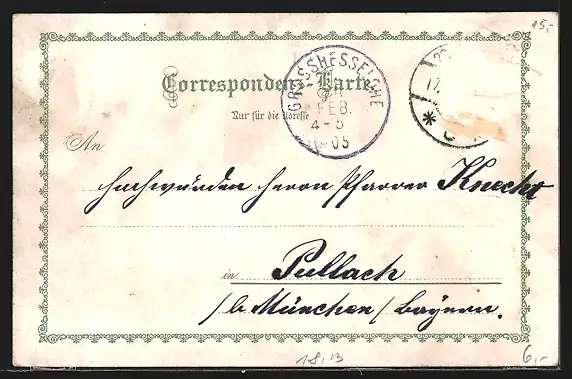 15,-
Correspondenz-Karte
Nur für die Adresse
GROSSHESSELOHE
FEB.
4-5
03
17.
An
Hochwürden Herrn Pfarrer Knecht
in Pullach
/b München / Bayern.
6,-